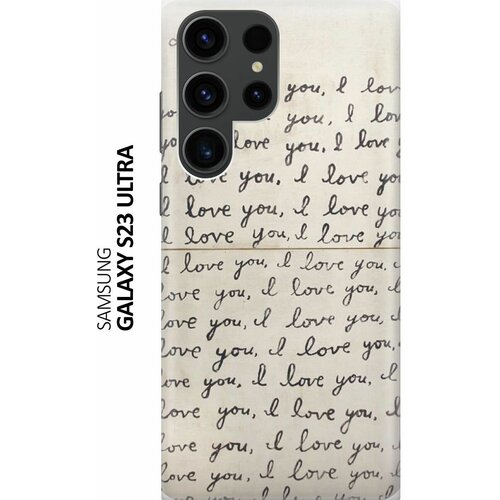 SAMSUNG
GALAXY S23 ULTRA
you, I lov
you, I lov
love you, I love
I love you, I love yo
love you, I love yo
I love you, I love yo
I love you, I love you,
love you, I love you,
love you, I love you,
love you, I love you,
love you, I love you,
love you, I love you, I
love you, I love you,
love you, I love you,